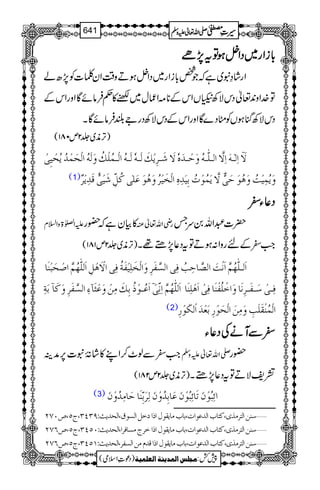 سیرتِ مصطفیٰ صلی اللہ تعالیٰ علیہ وسلم 641
بازار میں داخل ہو تو یہ پڑھے
ارشادِ نبوی ہے کہ جو شخص بازار میں داخل ہوتے وقت ان کلمات کو پڑھ لے
تو خداوند تعالیٰ دس لاکھ نیکیاں اس کے نامہ اعمال میں لکھنے کا حکم فرمائے گا اور اس کے
دس لاکھ گناہوں کو مٹا دے گا اور اس کے دس لاکھ درجے بلند فرمائے گا۔
(ترمذی جلد۲ ص۱۸۰)
لَآ اِلٰـهَ اِلَّا اللّٰـهُ وَحْدَهٗ لَا شَرِيْكَ لَـهٗ لَـهُ الْمُلْكُ وَلَهُ الْحَمْدُ يُحْيِيْ
وَيُمِيْتُ وَهُوَ حَيٌّ لَّا يَمُوْتُ بِيَدِهِ الْخَيْرُ وَهُوَ عَلٰى كُلِّ شَيْءٍ قَدِيْرٌ (1)
دعاء سفر
حضرت عبداللہ بن سرجس رضی اللہ تعالیٰ عنہ کا بیان ہے کہ حضور علیہ الصلوٰۃ والسلام
جب سفر کے لئے روانہ ہوتے تو یہ دعا پڑھتے تھے۔ (ترمذی جلد۲ ص۱۸۱)
اَللّٰـهُمَّ اَنْتَ الصَّاحِبُ فِى السَّفَرِ وَالْخَلِيْفَةُ فِى الْاَهْلِ اَللّٰهُمَّ اصْحَبْنَا
فِـىْ سَـفَـرِنَا وَاخْلُفْنَا فِىْ اَهْلِنَا اَللّٰهُمَّ اِنِّىْ اَعُوْذُ بِكَ مِنْ وَّعْثَاءِ السَّفَرِ وَكَآبَةِ
الْمُنْقَلَبِ وَمِنَ الْحَوْرِ بَعْدَ الْكَوْرِ (2)
سفر سے آنے کی دعاء
حضور صلی اللہ تعالیٰ علیہ وسلم جب سفر سے لوٹ کر اپنے کاشانۂ نبوت پر مدینہ
تشریف لاتے تو یہ دعا پڑھتے۔ (ترمذی جلد۲ ص۱۸۲)
اٰئِبُوْنَ تَائِبُوْنَ عَابِدُوْنَ لِرَبِّنَا حَامِدُوْنَ (3)
سنن الترمذی، کتاب الدعوات، باب مایقول اذا دخل السوق، الحدیث: ۳۴۳۹، ج۵، ص۲۷۰
سنن الترمذی، کتاب الدعوات، باب مایقول اذا خرج مسافرا، الحدیث: ۳۴۵۰، ج۵، ص۲۷۶
سنن الترمذی، کتاب الدعوات، باب مایقول اذا قدم من السفر، الحدیث: ۳۴۵۱، ج۵، ص۲۷۶
پیش کش: مجلس المدینۃ العلمیۃ (دعوتِ اسلامی)